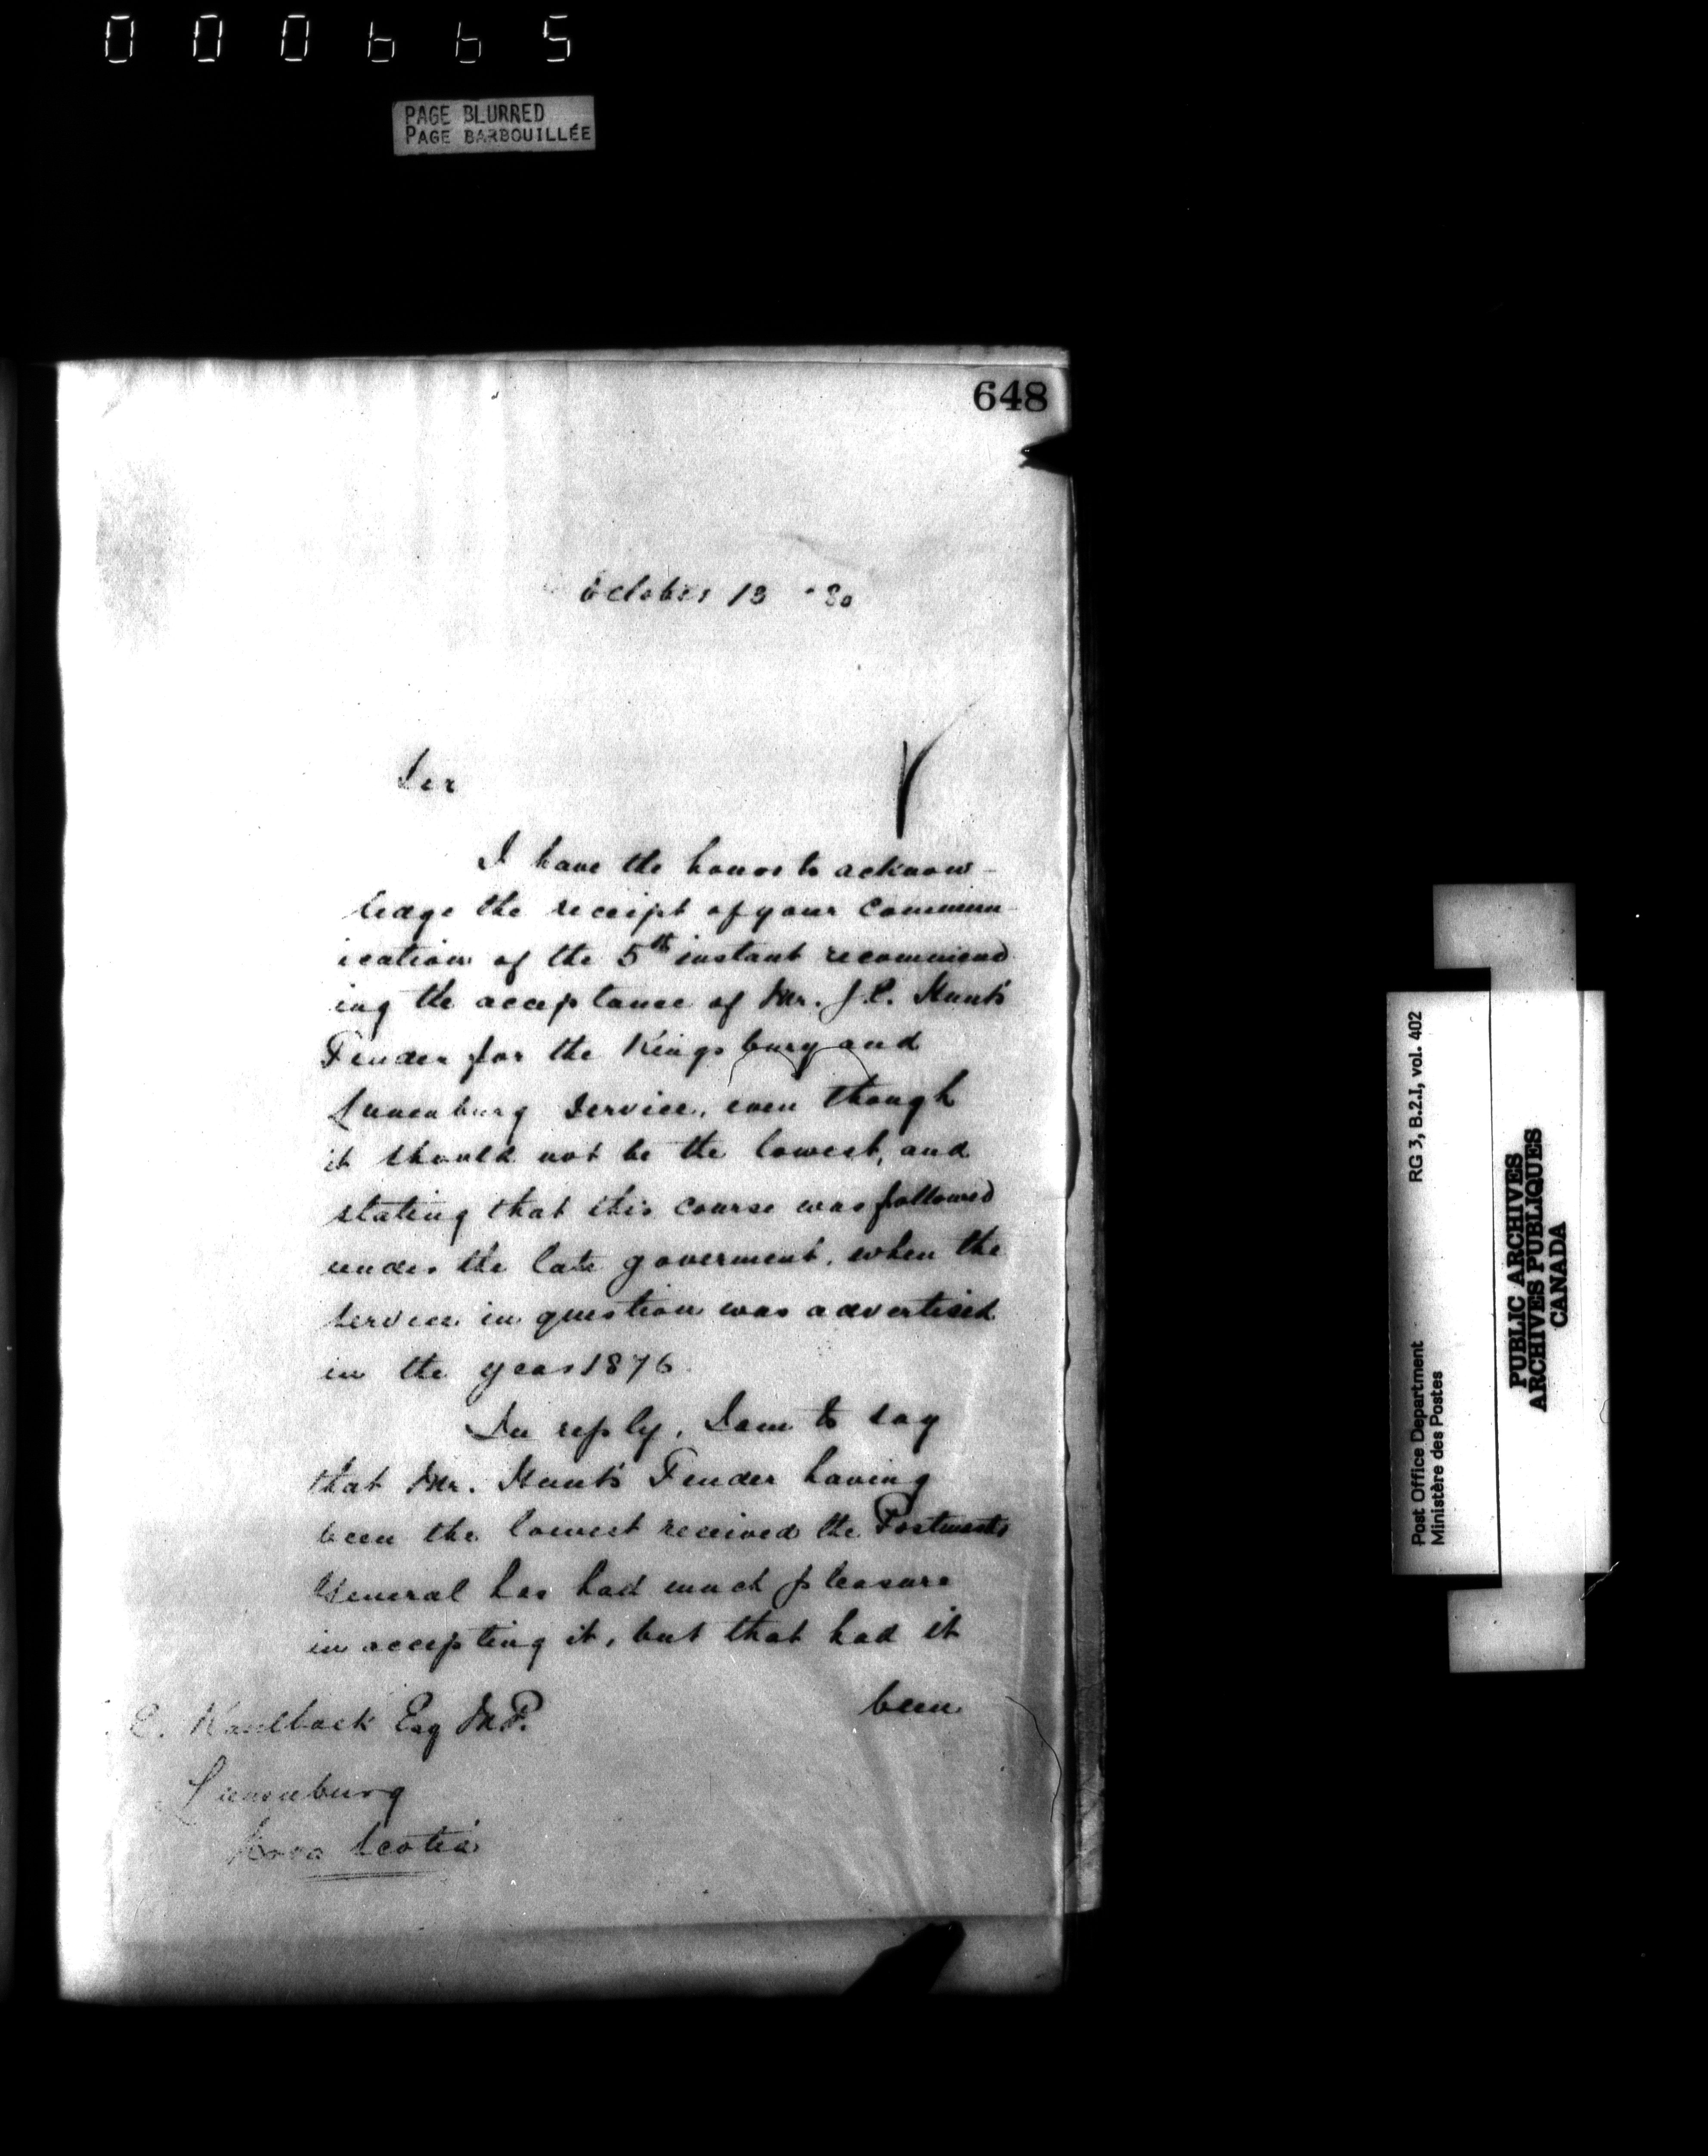 000665
PAGE BLURRED
PAGE BARBOUILLÉE
648
October 13 '80
Sir
I have the honor to acknow-
ledge the receipt of your Commun-
ication of the 5th instant recommend
ing the acceptance of Mr. J.C. Hunt's
Tender for the Kingsbury and
Lunenburg Service, even though
it should not be the lowest, and
stating that this course was followed
under the late goverment, when the
Service in question was advertised
in the year 1876.
In reply, I am to say
that Mr. Hunt's Tender having
been the lowest received the Postmaster
General has had much pleasure
in accepting it, but that had it
been
C. Kaulback Esq M.P.
Lunenburg
Nova Scotia
RG 3, B.2.I, vol. 402
Post Office Department
Ministère des Postes
PUBLIC ARCHIVES
ARCHIVES PUBLIQUES
CANADA